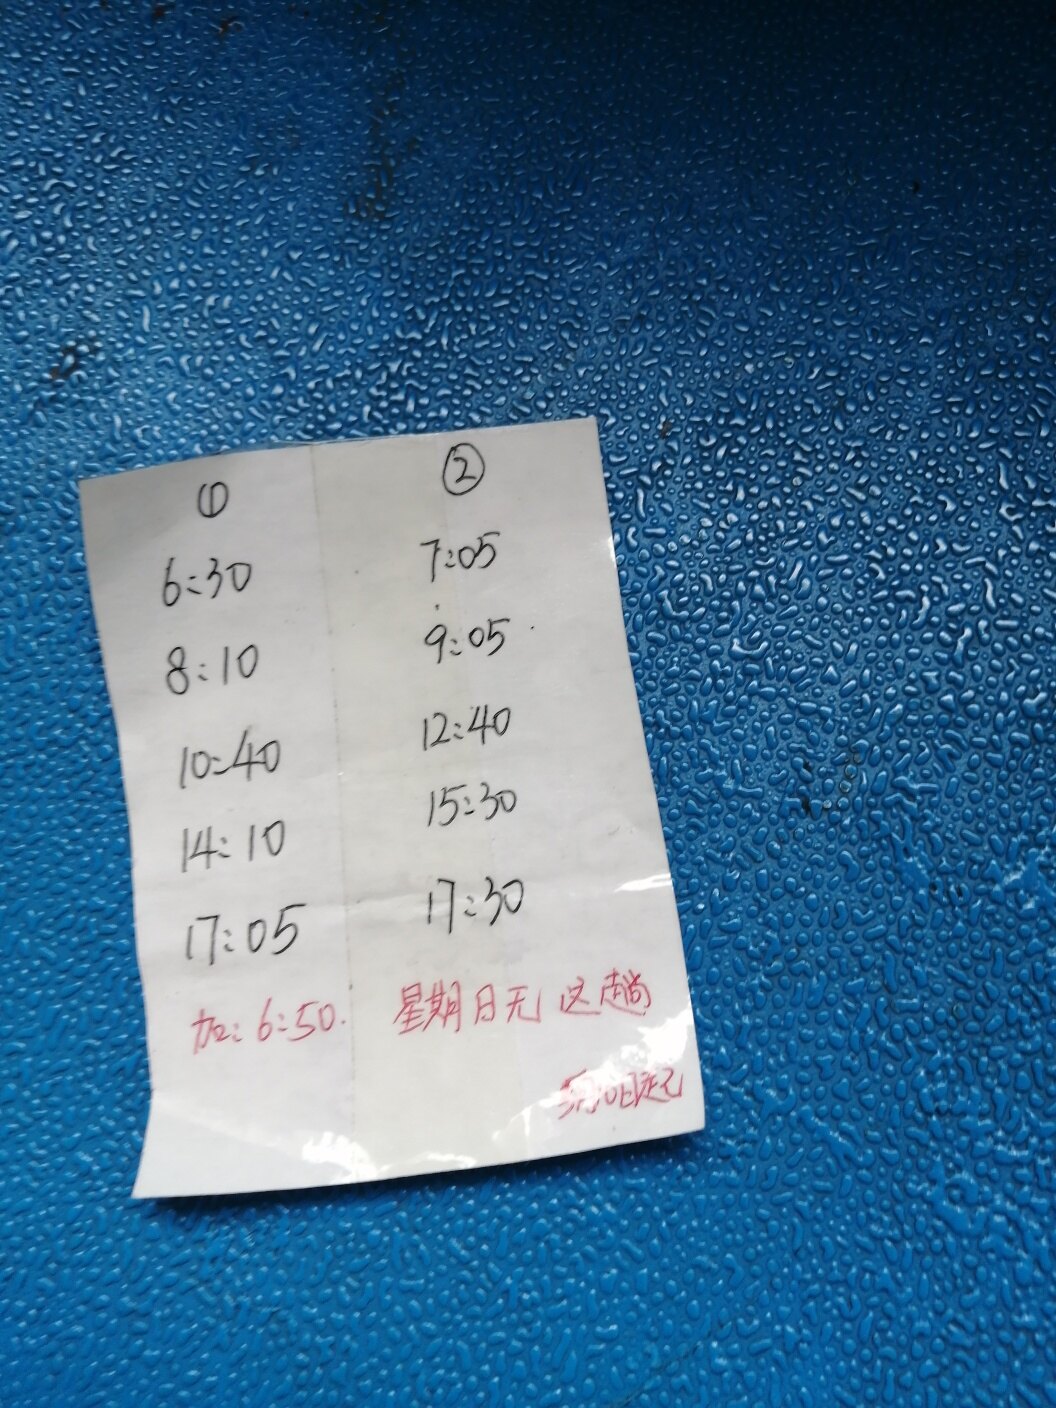 ① ②
6:30 7:05
8:10 9:05
10:40 12:40
14:10 15:30
17:05 17:30
加:6:50. 星期日无这趟
5月10日起